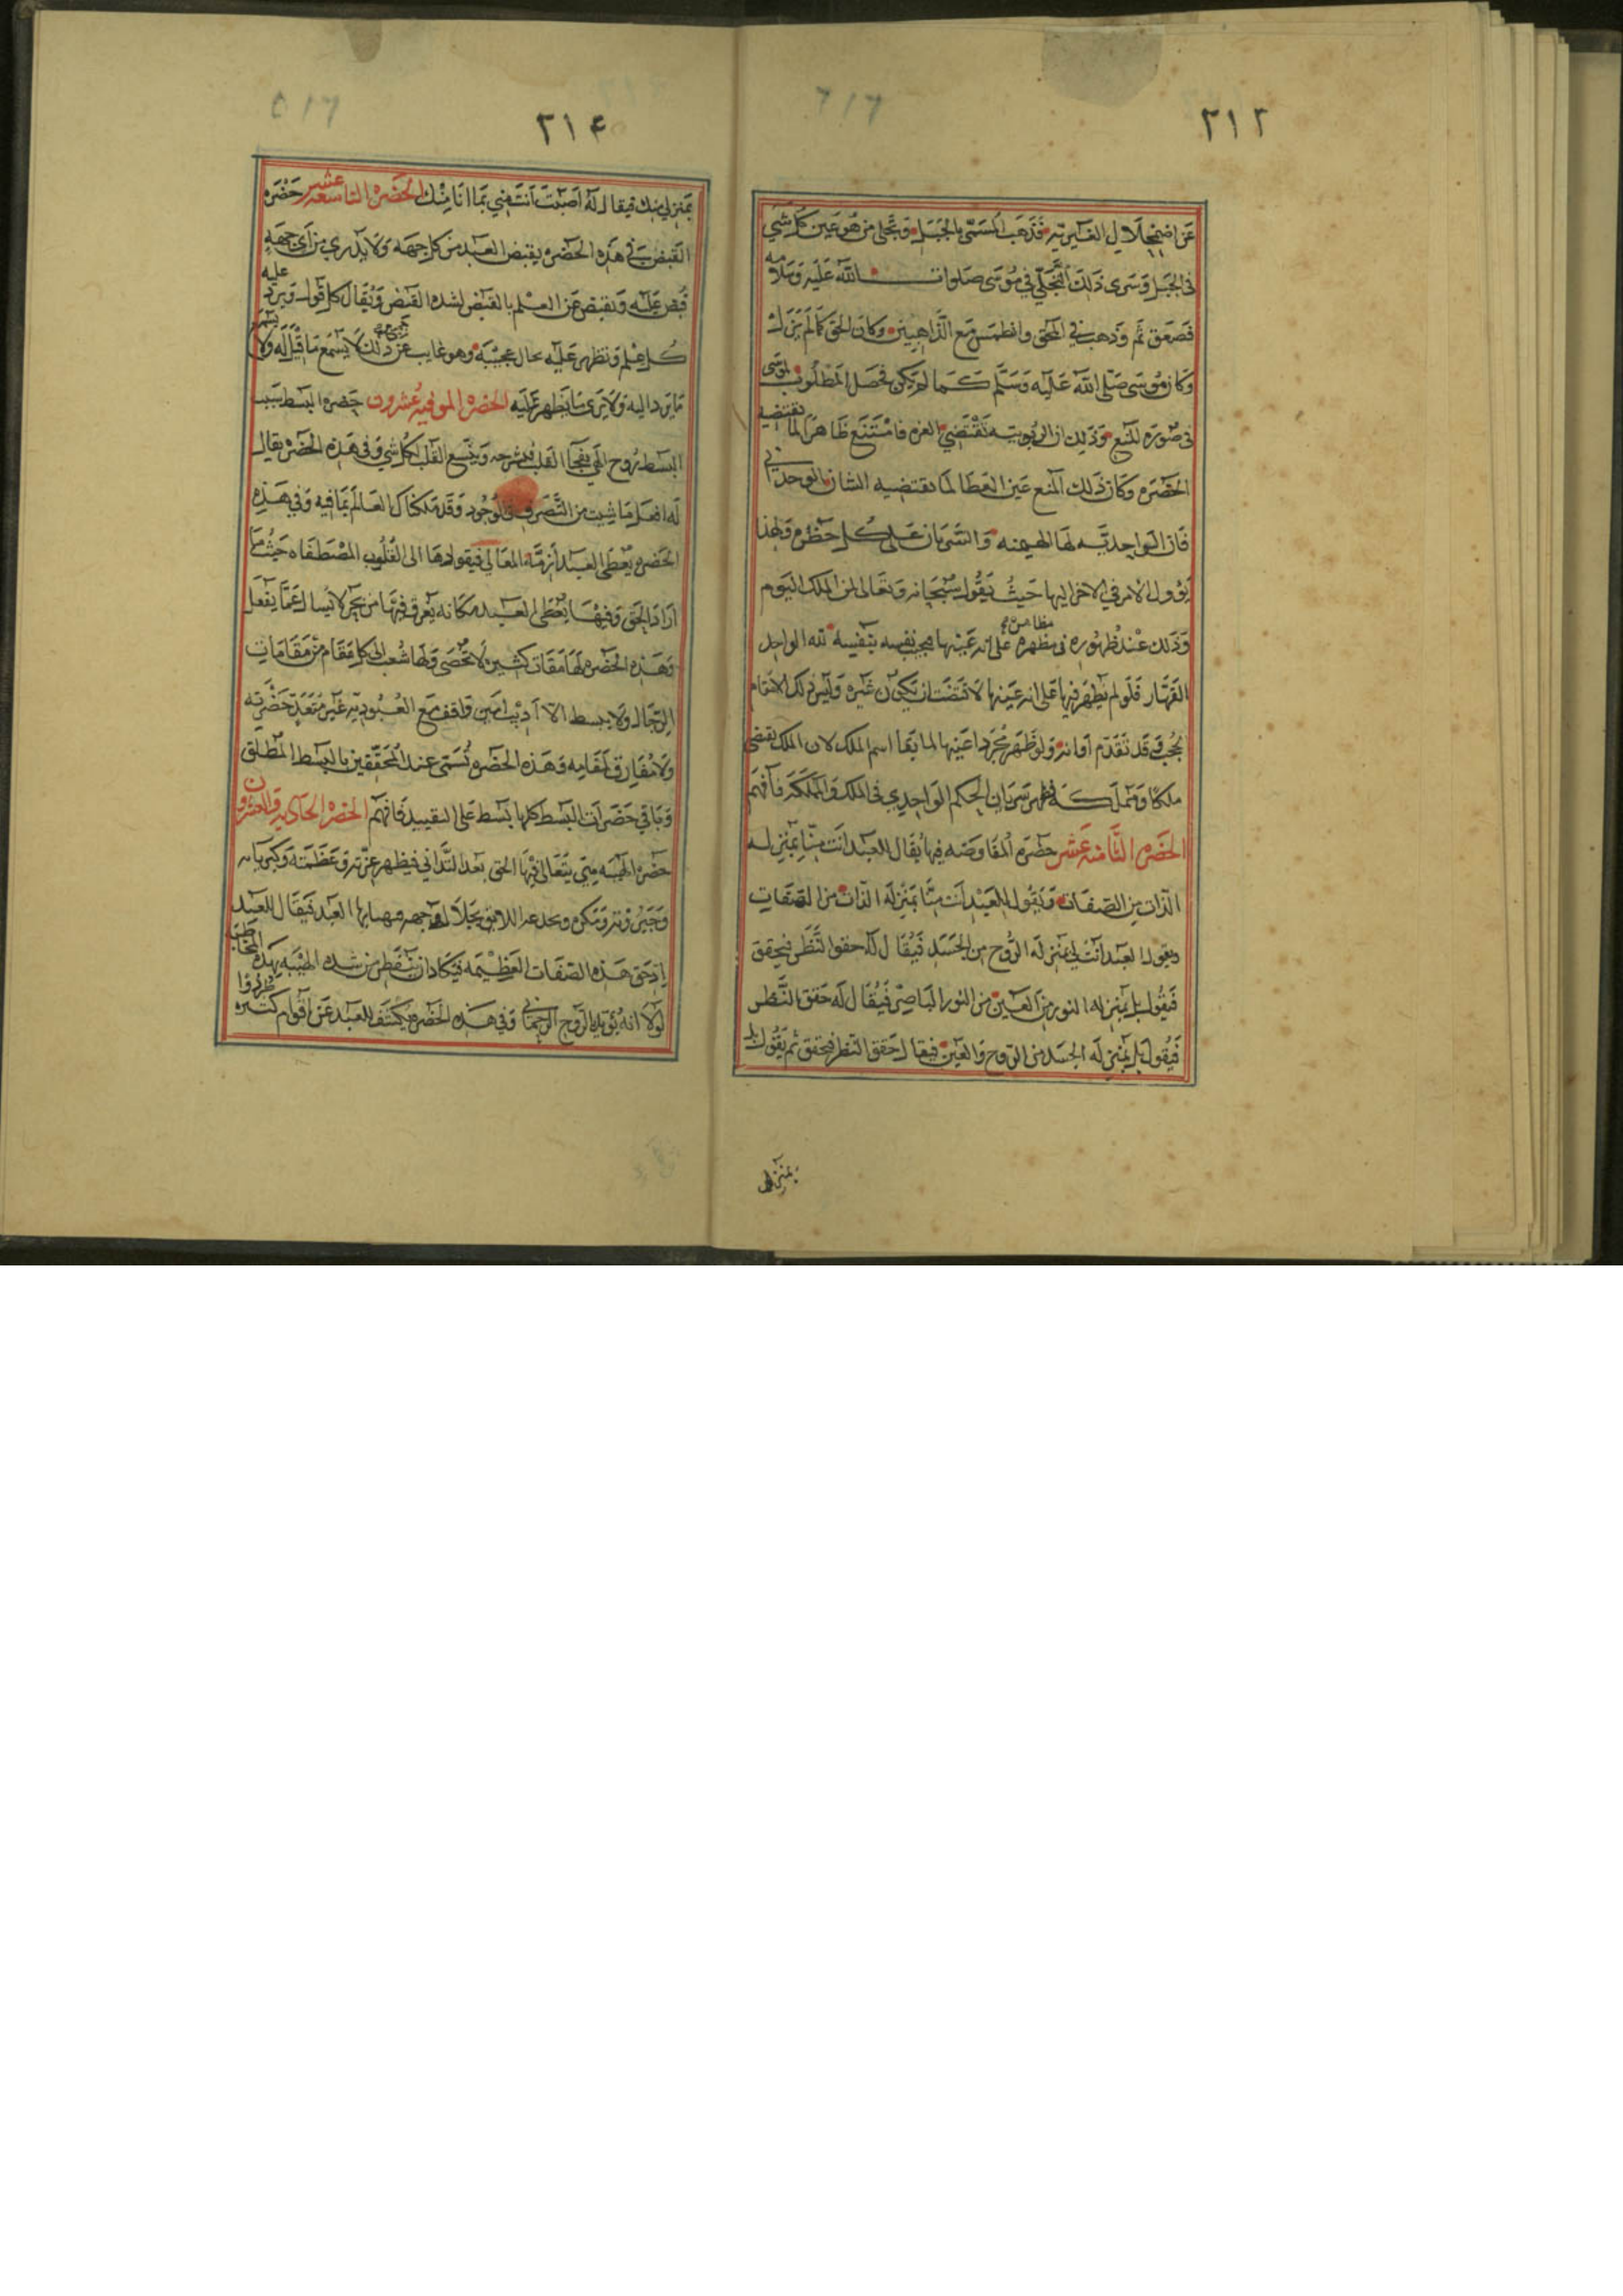 ٢١٣
عن اضمحلال الغيرية فذهب المسمى بالجبل وتجلى من هو عين كل شي
في الجبل وسرى ذلك التجلي في موسى صلوات الله عليه وسلامه
فصعق ثم وذهب في المحق وانطمس مع الذاهبين وكان الحق كما لم يزل
وكان موسى صلى الله عليه وسلم كما لم يكن فحصل المطلوب لموسى
في صورة المنع وذلك ان الربوبية تقتضي العزه فامتنع ظاهرا لما تقتضيه
الحضره وكان ذلك المنع عين العطا لما تقتضيه الشان الوحداني
فان الواحدية لها الهيمنه والسريان على كل حظره ولهذا
يؤول الامر في الاخر اليها حيث يقول سبحانه وتعالى لمن الملك اليوم
وذلك عند ظهوره في مظهره على انه عينها فيجيب نفسه بنفسه لله الواحد
القهار فلو لم يظهر فيها على انه عينها لاقتضت ان تكون غيره وليس ذلك
قد تقدم اوانه ولو ظهر مجردا عنها لما بقا اسم الملك لان الملك يقتضي
ملكا ومملكة فظهر سريان الحكم الواحدي في الملك والمملكة فافهم
الحضره الثامنه عشر حضره المفاوضه فيها يقال للعبد انت منا بمنزله
الذات من الصفات ويقول للعبد انت منا بمنزله الذات من الصفات
ويقول العبد انت لي بمنزله الروح من الجسد فيقال له حقق النظر فيحقق
فيقول بل بمنزله النور من العين من النور الباصر فيقال له حقق النظر
فيقول بل بمنزله الجسد من الروح والعين فيقال حقق النظر فيحقق ثم يقول بل
بمنزله
٢١٤
بمنزلي منك فيقال له اصبت انت مني بما انا منك الحضره التاسعه عشر حضره
القبض في هذه الحضره يقبض العبد من كل جهه ولا يدري من اي جهه
قبض عليه وينقبض عن العلم بالقبض لشده القبض ويقال كل قول ويرد عليه
كل علم وتظهر عليه حال عجيبة وهو غايب عن ذلك لا يسمع ما قيل له ولا
ما يرد اليه ولا يرى ما يظهر عليه الحضره الموفيه عشرون حضره البسط سبب
البسط روح الهي يفجا القلب فيشرحه ويتسع القلب لكل شي وفي هذه الحضره يقال
له افعل ما شيت من التصرف في الوجود وقد ملكناك العالم بما فيه وفي هذه
الحضره يعطى العبد ازمة المعالي فيقودها الى القلوب المصطفاه حيث ما
اراد الحق وفيها يعطى العبد مكانه يغرق فيها من بحر لا يسال عما يفعل
وهذه الحضره لها مقامات كثيره لا تحصى ولها شعب الى كل مقام من مقامات
الرجال ولا يبسط الا اديب امين واقف مع العبودية غير متعد حضرته
ولا مفارق لمقامه وهذه الحضره تسمى عند المحققين بالبسط المطلق
وباقي حضرات البسط كلها بسط على التقييد فافهم الحضره الحادية والعشرون
حضره الهيبه يتعالى فيها الحق بعد التداني فيظهر عزته وعظمته وكبرياه
وجبروته فيقال للعبد
هذه الصفات العظيمه فيكاد ان يتفطر من شده الهيبه بهذه المخاطبه
لولا انه يؤيد بالروح الرحماني وفي هذه الحضره يكشف للعبد عن اقوام كثيره طردوا